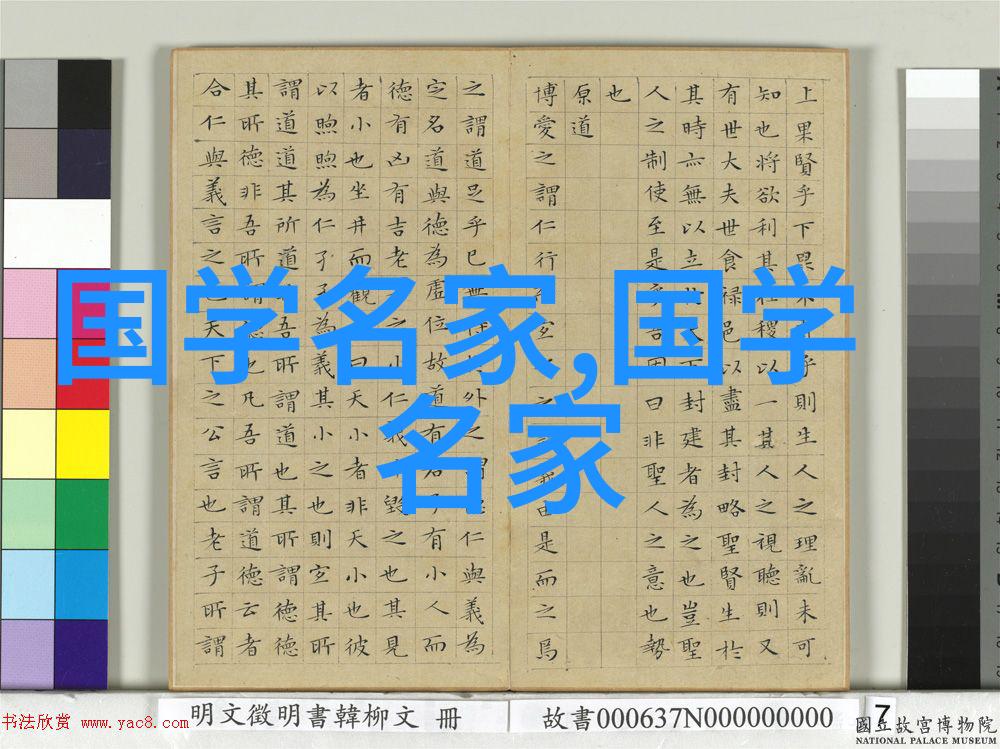 上果賢乎下果不肖乎則生人之理亂未可
知也將欲利其社稷以一其人之視聽則又
有世大夫世食祿邑以盡其封略聖賢生於
其時亦無以立於天下封建者為之也豈聖
人之制使至是乎吾固曰非聖人之意也勢
也
原道
博愛之謂仁行而宜之之謂義由是而之焉
之謂道足乎己無待於外之謂德仁與義為
定名道與德為虛位故道有君子有小人而
德有凶有吉老子之小仁義毀之也其見
者小也坐井而觀曰天小者非天小也彼
以煦煦為仁孑孑為義其小之也則宜其所
謂道道其所道非吾所謂道也其所謂德德
其所德非吾所謂德也凡吾所謂道德云者
合仁與義言之也天下之公言也老子所謂
国学名家,国学
名家
书法欣赏 www.yac8.com
明文徵明書韓柳文 冊
故書000637N000000000
7
國立故宮博物院
NATIONAL PALACE MUSEUM